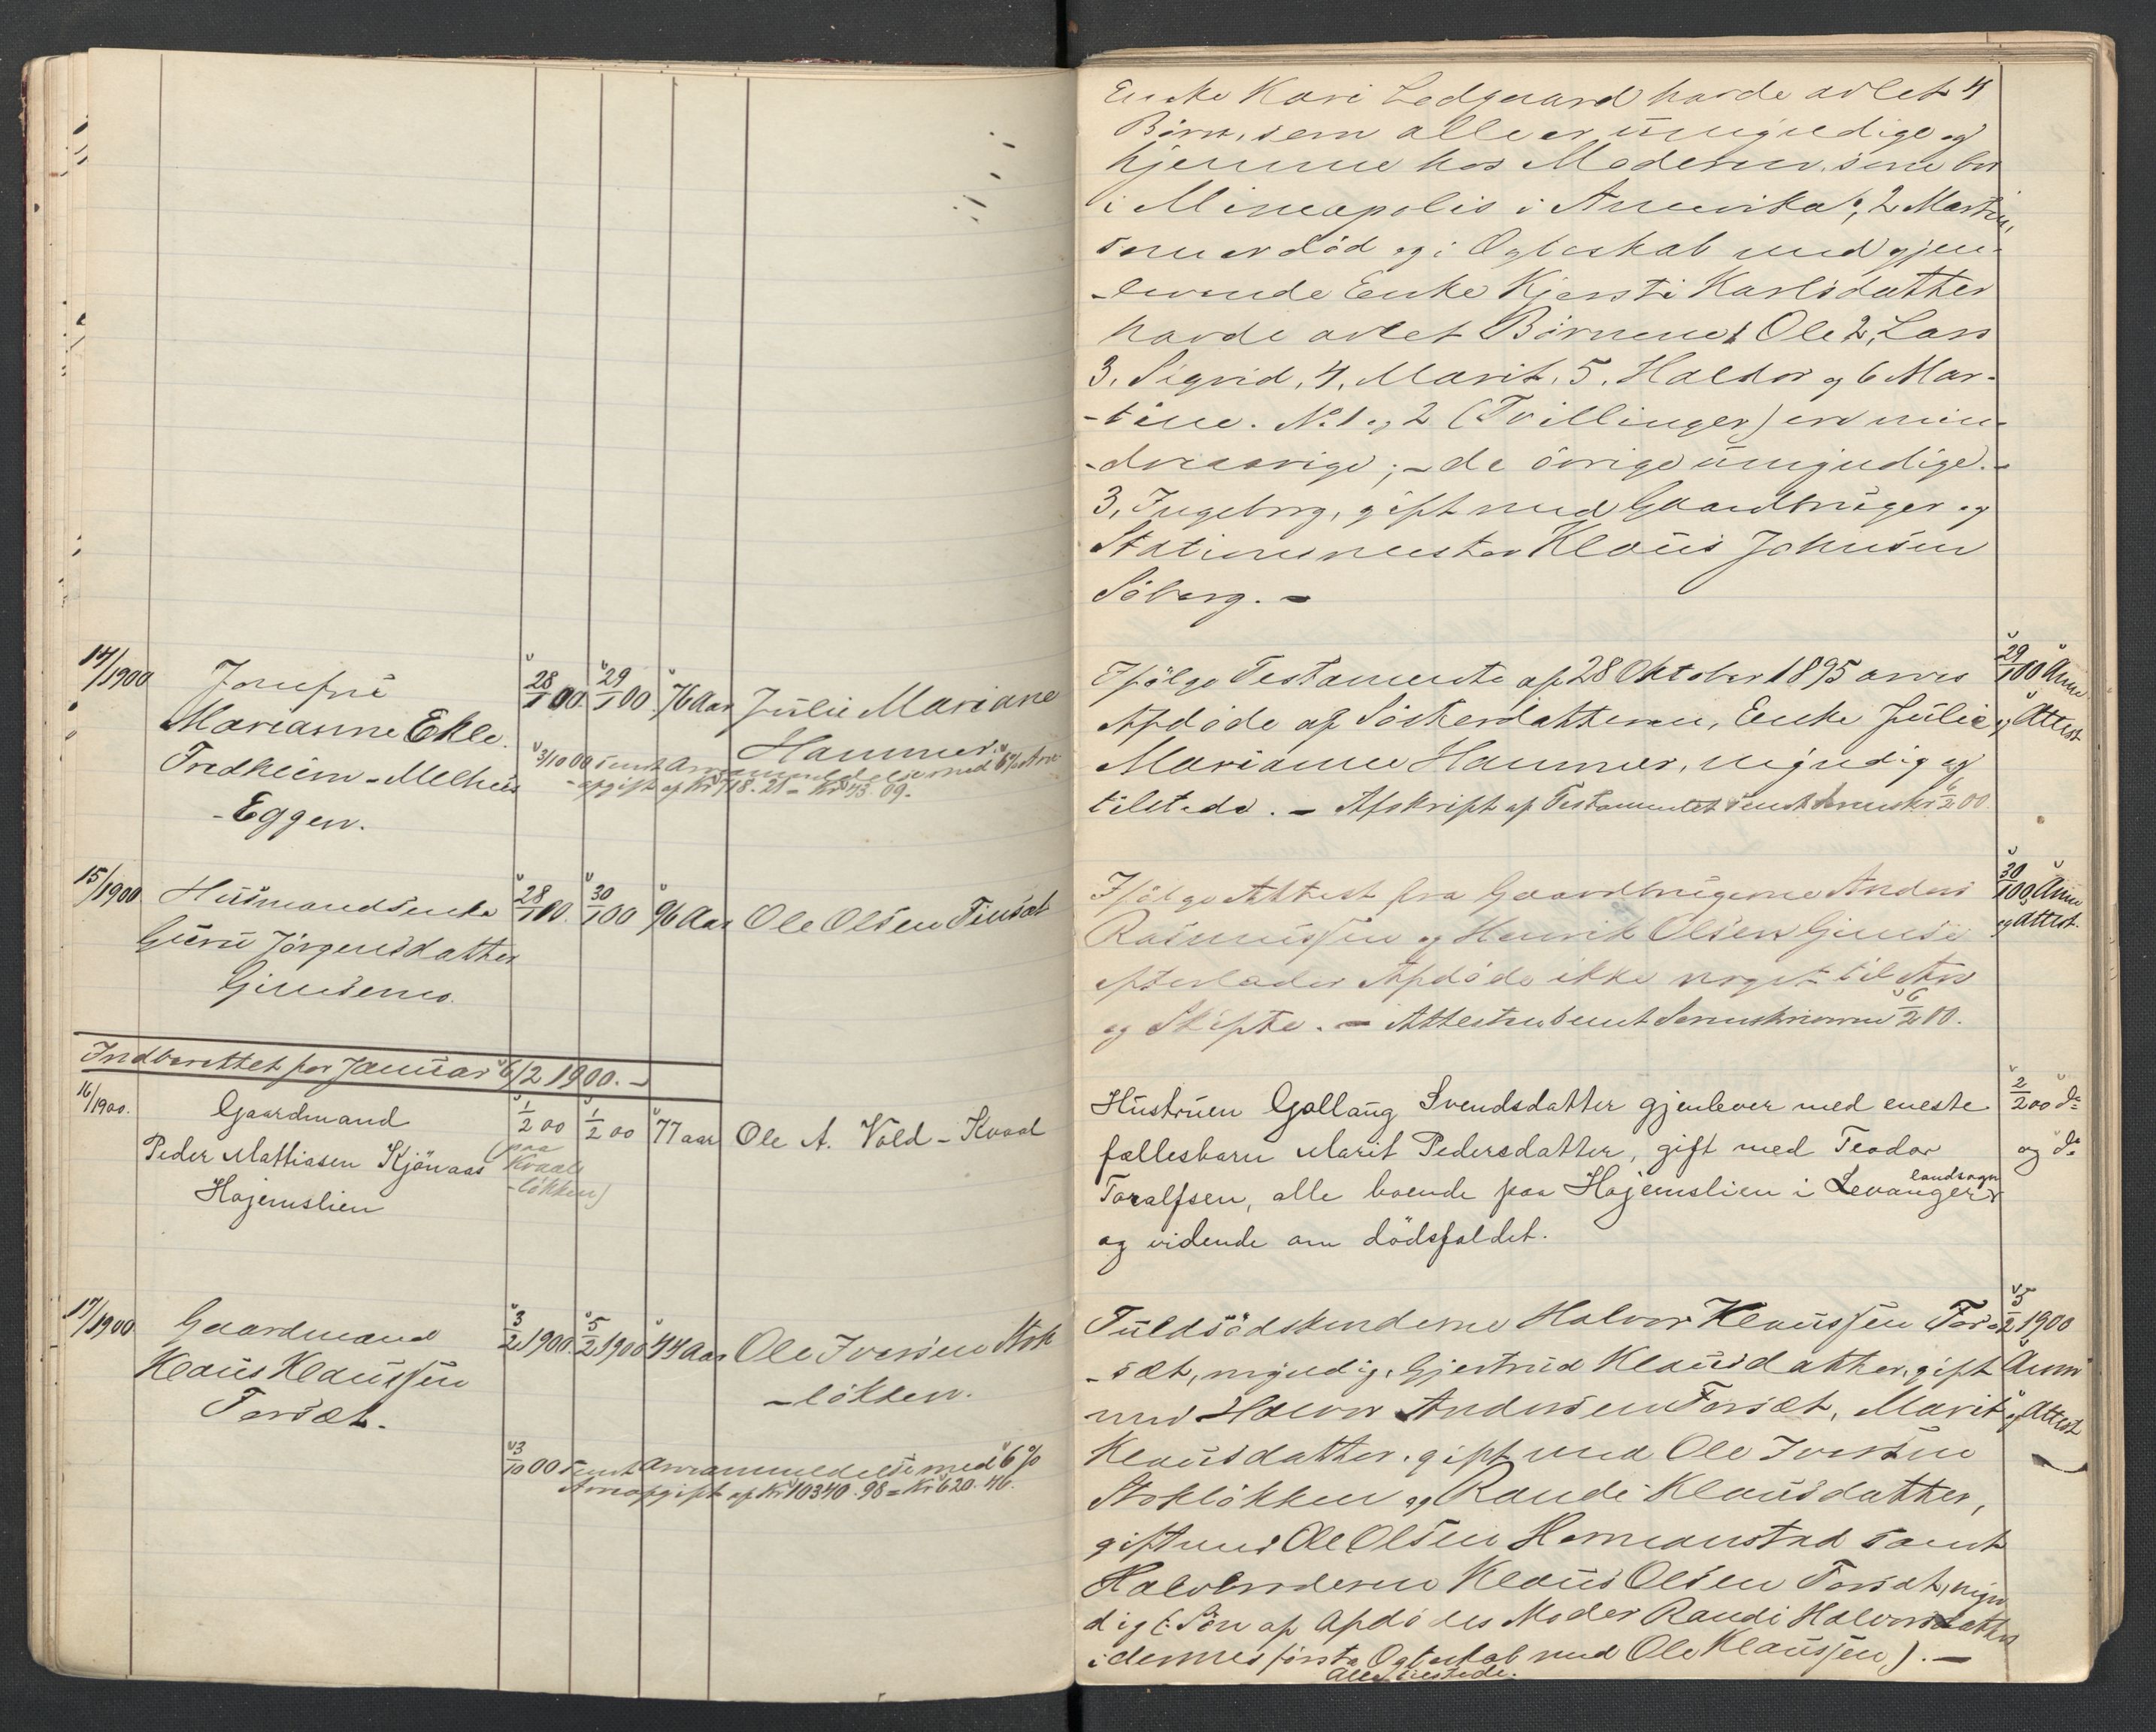 Enke Kari Ledgaard havde avlet 4
Börn, som alle er umyndige og
hjemme hos Moderen, som bor
i Mineapolis i Amerika; 2 Martin,
som er död og i Ægteskab med gjen-
-levende Enke Kjersti Karlsdatter
havde avlet Börnene 1 Ole 2, Lars
3, Sigrid, 4, Marit, 5, Haldor og 6 Mar-
-tine. No 1 og 2 (Tvillinger) er min-
-dreaarige; - de övrige umyndige. -
3, Ingeborg, gift med Gaardbruger og
Stationsmester Klaus Johnsen
Söberg. -
14/1900
Josefine
Marianne Ekle.
Tredheim - Melhus
-Eggen.
28/1 00. 29/1 00 76 Aar Julie Mariane
Hammer.
3/10 00 sendt Arveanmeldelse med 6% Arve-
-afgift af Kr 718.21 = Kr 43.09.
Ifölge Testamente af 28 Oktober 1895 arves
Afdöde af Sösterdatteren, Enke Julie
Marianne Hammer, myndig og
tilstede. - Afskrift af Testamentet sendt Sorenskr. 6/2 00
29/1 00 Anm
og Attest
15/1900
Husmandsenke
Guru Jörgensdatter
Gimsemo.
28/1 00. 30/1 00 96 Aar Ole Olsen Finsæt
Ifölge Attest fra Gaardbrugerne Anders
Rasmussen og Henrik Olsen Gimse
efterlader Afdöde ikke noget til Arv
og Skifte. - Attesten sendt Sorenskriveren 6/2 00.
30/1 00 Anm
og Attest.
Indberettet for Januar 6/2 1900. -
16/1900.
Gaardmand
Peder Mathiasen Kjönaas
Hojemslien
1/2 00 1/2 00 77 aar Ole A. Vold - Kvaal
(paa
Kvaals
-lökken)
Hustruen Gollaug Svendsdatter gjenlever med eneste
fællesbarn Marit Pedersdatter, gift med Teodor
Toralfsen, alle boende paa Hojemslien i Levanger landsogn
og vidende om dödsfaldet.
2/2 00 do
og do
17/1900
Gaardmand
Klaus Klaussen
Forsæt.
3/2 1900. 5/2 1900 44 Aar Ole Iversen Stok
-lökken.
3/10 00 sendt Arveanmeldelse med 6%
Arveafgift af Kr 10340.98 = Kr 620.46.
Fuldsödskenderne Halvor Klaussen For-
-sæt, myndig, Gjertrud Klausdatter, gift
med Halvor Andersen Forsæt, Marit
Klausdatter, gift med Ole Iversen
Stoklökken og Randi Klausdatter,
gift med Ole Olsen Hermanstad samt
Halvbroderen Klaus Olsen Forsæt, myn
dig (: Sön af Afdödes Moder Randi Halvorsdatter
i dennes förste Ægteskab med Ole Klaussen). -
Alle tilstede.
5/2 1900
Anm
og Attest